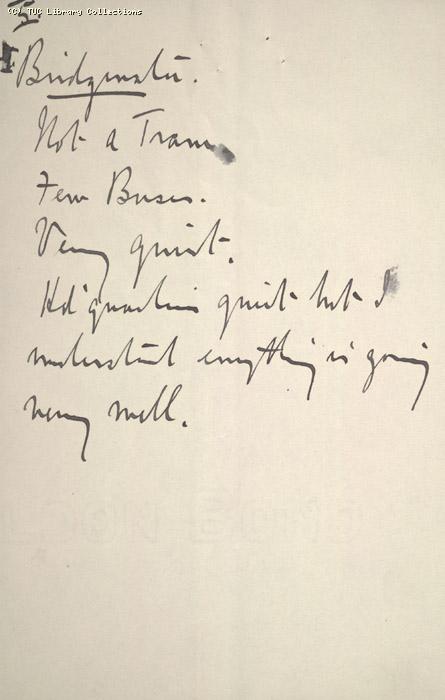 (C) TUC Library Collections
Bridgwater.
Not a Tram
Few Buses.
Very quiet.
Hd'quarters quiet but I
understand everything is going
very well.